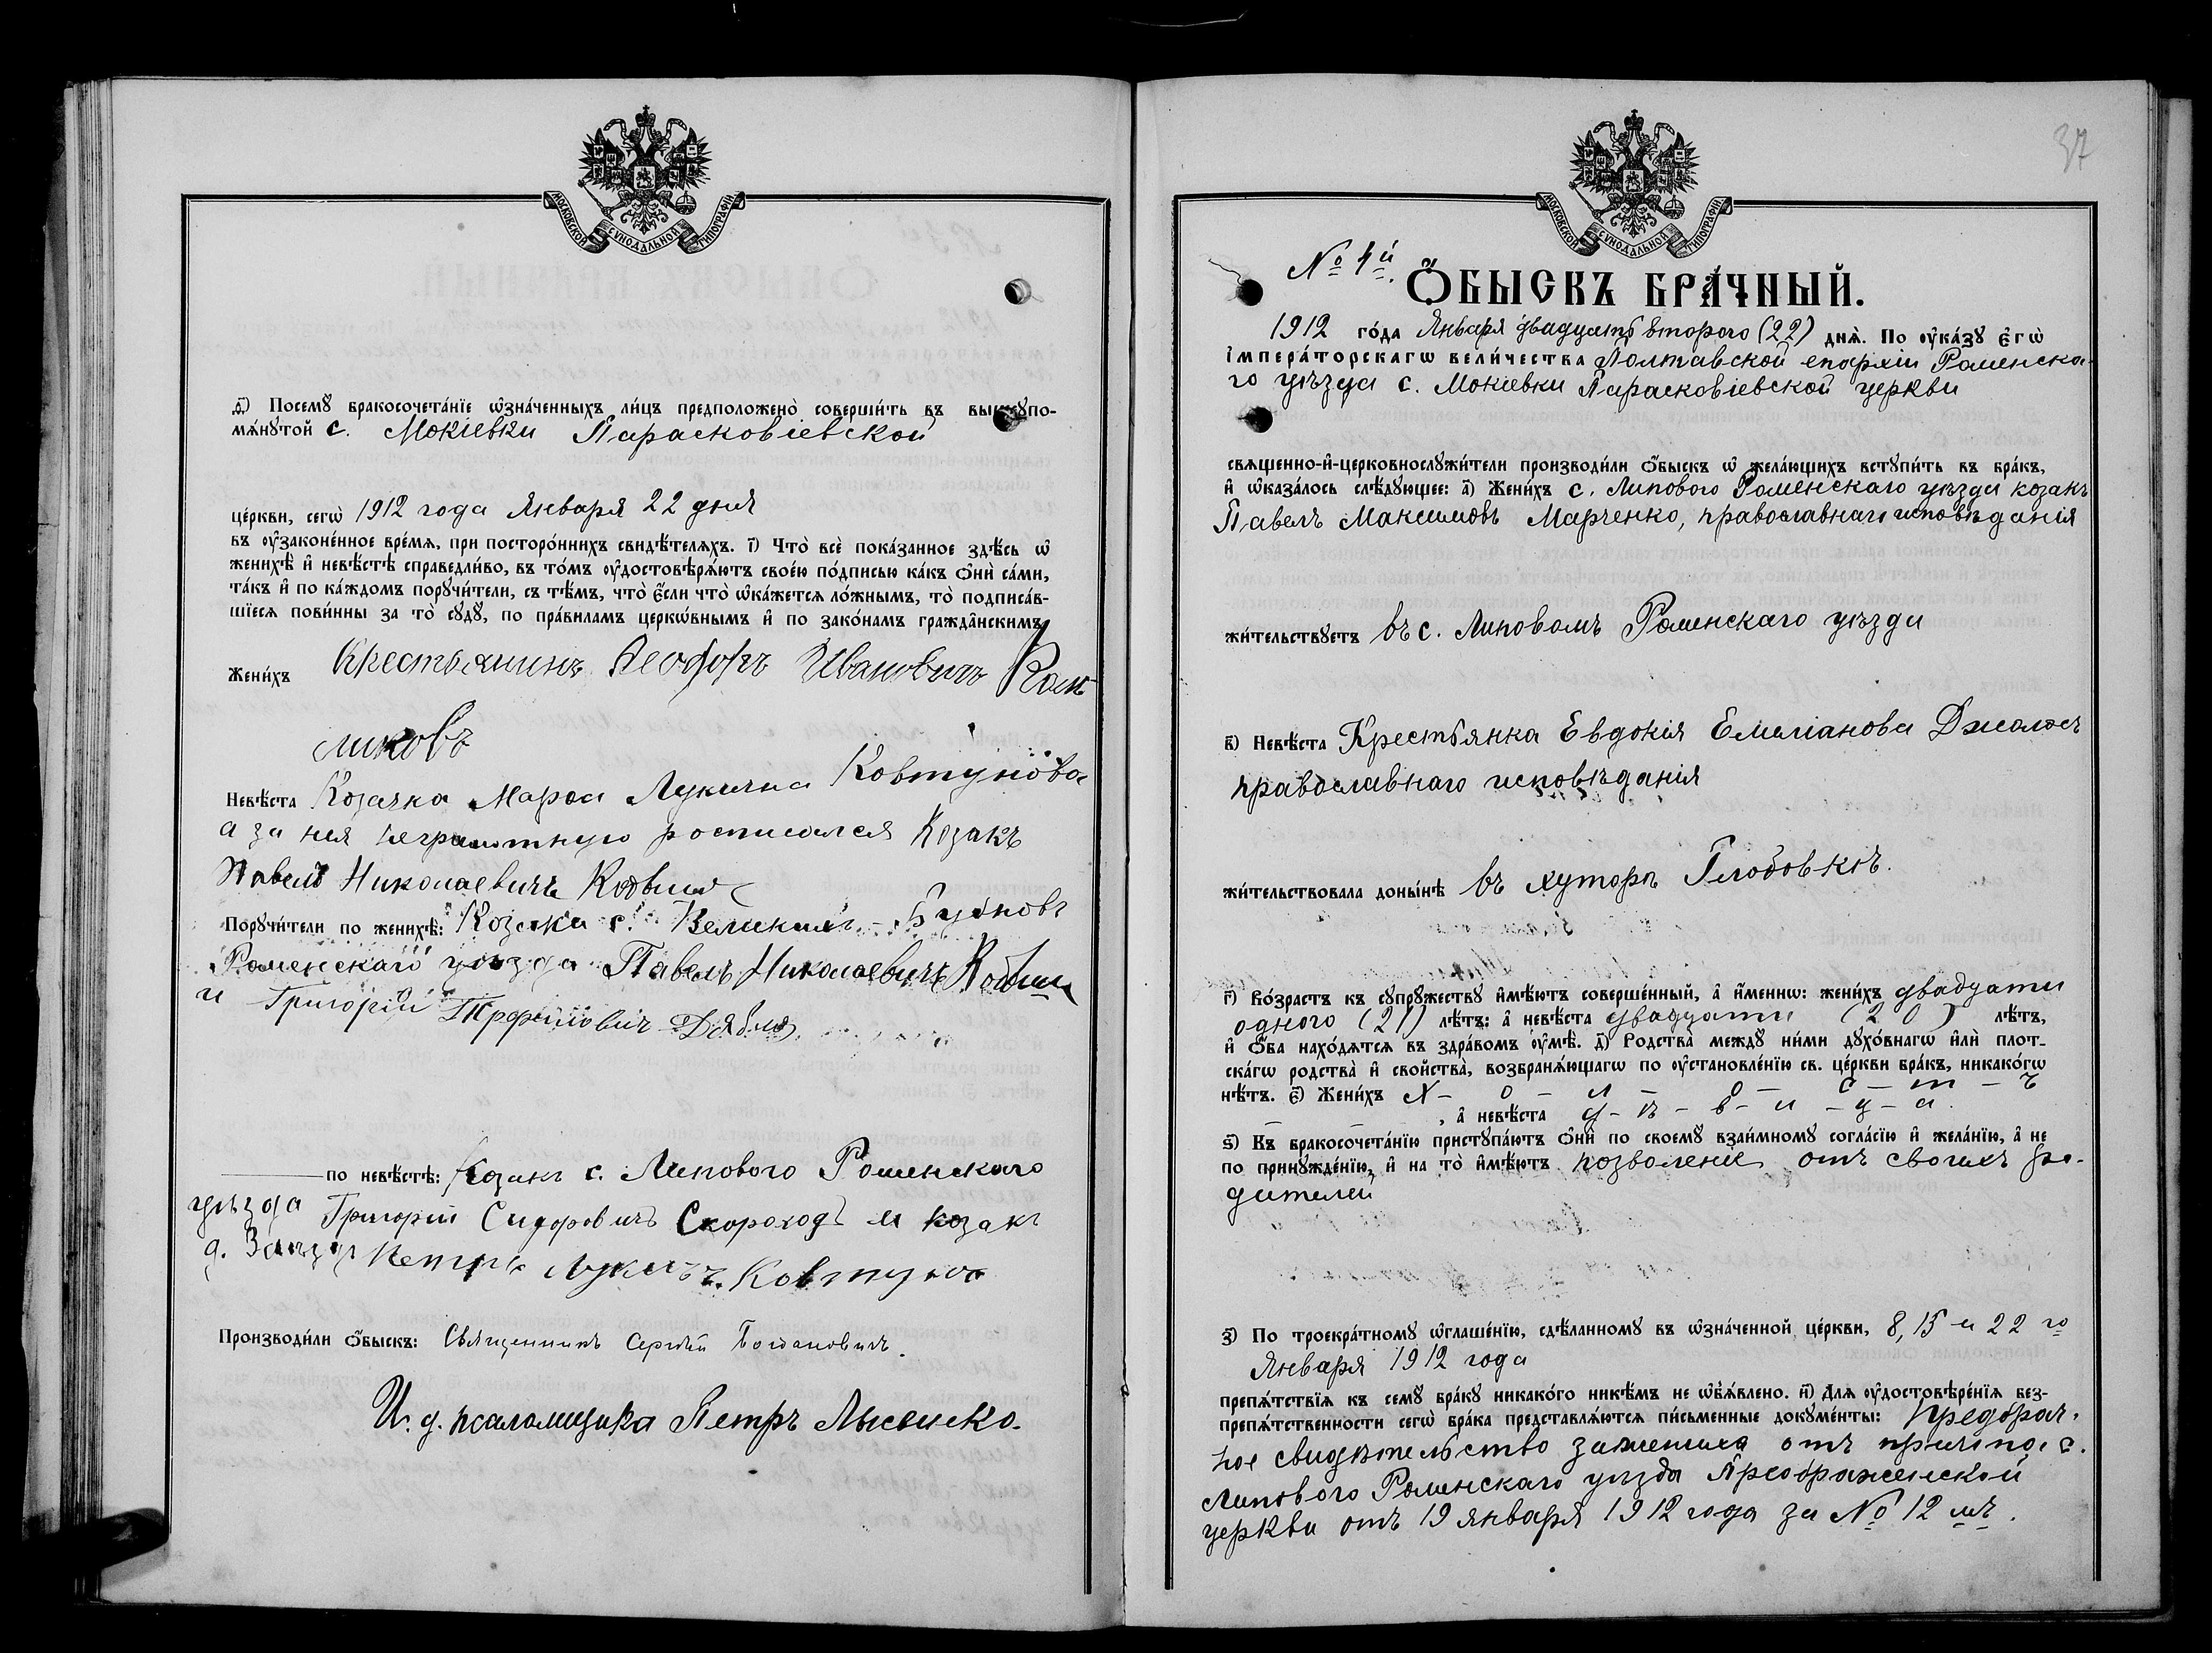 МОСКОВСКОЙ СѴНОДАЛЬНОЙ ТИПОГРАФІИ
ѳ҃) Посемꙋ̀ бракосочета́нїе ѡ҆зна́ченныхъ ли́цъ предположено̀ соверши́ть въ вышеꙋпо-
мѧ́нꙋтой с. Мокіевки Парасковіевской
це́ркви, сегѡ̀ 1912 года Января 22 дня
въ ᲂу҆зако́ненное вре́мѧ, при посторо́ннихъ свидѣ́телѧхъ. і҃) Что̀ всѐ пока́занное здѣ́сь ѡ҆
женихѣ̀ и҆ невѣ́стѣ справедли́во, въ то́мъ ᲂу҆достовѣрѧ́ютъ свое́ю по́дписью ка́къ ѻ҆нѝ са́ми,
та́къ и҆ по ка́ждомъ порꙋчи́тели, съ тѣ́мъ, что̀ є҆́сли что̀ ѡ҆ка́жетсѧ ло́жнымъ, то̀ подписа́в-
шїесѧ пови́нны за то̀ сꙋдꙋ̀, по пра́виламъ церко́внымъ и҆ по зако́намъ гражда́нскимъ.
Жени́хъ Крестьянинъ Ѳеодоръ Ивановичъ
ликовъ
Невѣ́ста Козачка Марѳа Лукична Ковтунова
а за нея неграмотную росписался Козакъ
Павелъ Николаевичъ
Порꙋчи́тели по женихѣ̀: Козаки с. Великихъ - Бубновъ
Роменскаго уѣзда Павелъ Николаевичъ
и Григорій
по невѣ́стѣ: Козакъ с. Липового Роменскаго
уѣзда Григорій Сидоровичъ Скороходъ и козакъ
д. Петръ Ковтунъ
Производи́ли ѻ҆́быскъ: Священникъ Сергѣй
И. д. псаломщика Петръ Лысенко.
37
МОСКОВСКОЙ СѴНОДАЛЬНОЙ ТИПОГРАФІИ
№ 4й.
Ѻ҆́БЫСКЪ БРА́ЧНЫЙ.
1912 го́да Января двадцать второго (22) днѧ̀. По ᲂу҆ка́зꙋ є҆гѡ̀
і҆мпера́торскагѡ вели́чества Полтавской епархіи Роменска-
го уѣзда с. Мокіевки Парасковіевской церкви
свѧщенно-и҆-церковнослꙋжи́тели производи́ли ѻ҆́быскъ ѡ҆ жела́ющихъ встꙋпи́ть въ бра́къ,
и҆ ѡ҆каза́лось слѣ́дꙋющее: а҃) Жени́хъ с. Липового Роменскаго уѣзда козакъ
Павелъ Максимовъ Марченко, православнаго исповѣданія
жи́тельствꙋетъ въ с. Липовомъ Роменскаго уѣзда
в҃) Невѣ́ста Крестьянка Евдокія Емиліанова
православнаго исповѣданія
жи́тельствовала доны́нѣ въ хуторѣ Глобовкѣ.
г҃) Во́зрастъ къ сꙋпрꙋ́жествꙋ и҆мѣ́ютъ соверше́нный, а҆ и҆́меннѡ: жени́хъ двадцати
одного (21) лѣ́тъ: а҆ невѣ́ста двадцати (20) лѣ́тъ,
и҆ ѻ҆́ба нахо́дѧтсѧ въ здра́вомъ ᲂу҆мѣ̀. д҃) Родства̀ междꙋ̀ ни́ми дꙋхо́внагѡ и҆лѝ плот-
ска́гѡ родства̀ и҆ сво́йства, возбранѧ́ющагѡ по ᲂу҆становле́нїю св. це́ркви бра́къ, никако́гѡ
нѣ́тъ. є҃) Жени́хъ х - о - л - о - с - т - ъ
, а҆ невѣ́ста д - ѣ - в - и - ц - а.
ѕ҃) Къ бракосочета́нїю пристꙋпа́ютъ ѻ҆нѝ по своемꙋ̀ взаи́мномꙋ согла́сїю и҆ жела́нїю, а҆ не
по принꙋжде́нїю, и҆ на то̀ и҆мѣ́ютъ позволеніе отъ своихъ ро-
дителей
з҃) По троекра́тномꙋ ѡ҆глаше́нїю, сдѣ́ланномꙋ въ ѡ҆зна́ченной це́ркви, 8, 15 и 22 го
Января 1912 года
препѧ́тствїѧ къ семꙋ̀ бра́кꙋ никако́го никѣ́мъ не ѡ҆б̾ѧ́влено. и҃) Длѧ ᲂу҆достовѣре́нїѧ без-
препѧ́тственности сегѡ̀ бра́ка представлѧ́ютсѧ пи́сьменные докꙋме́нты: Предбрач-
ное свидѣтельство жениха отъ причта с.
Липового Роменскаго уѣзда Преображенской
церкви отъ 19 января 1912 года за № 12 мъ.